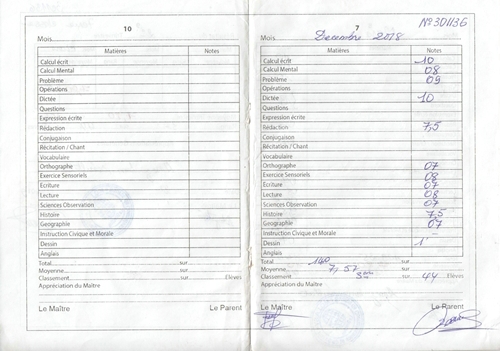 10
Mois
Matières Notes
Calcul écrit
Calcul Mental
Problème
Opérations
Dictée
Questions
Expression écrite
Rédaction
Conjugaison
Récitation / Chant
Vocabulaire
Orthographe
Exercice Sensoriels
Ecriture
Lecture
Sciences Observation
Histoire
Geographie
Instruction Civique et Morale
Dessin
Anglais
Total sur
Moyenne sur
Classement sur Elèves
Appréciation du Maître
Le Maître Le Parent
7
N° 301136
Mois Decembre 2018
Matières Notes
Calcul écrit 10
Calcul Mental 08
Problème 09
Opérations
Dictée 10
Questions
Expression écrite
Rédaction 7,5
Conjugaison
Récitation / Chant
Vocabulaire
Orthographe 07
Exercice Sensoriels 08
Ecriture 07
Lecture 08
Sciences Observation 07
Histoire 7,5
Geographie 07
Instruction Civique et Morale –
Dessin
Anglais
Total 140 sur
Moyenne 7,57 sur
Classement sur 44 Elèves
Appréciation du Maître
Le Maître Le Parent